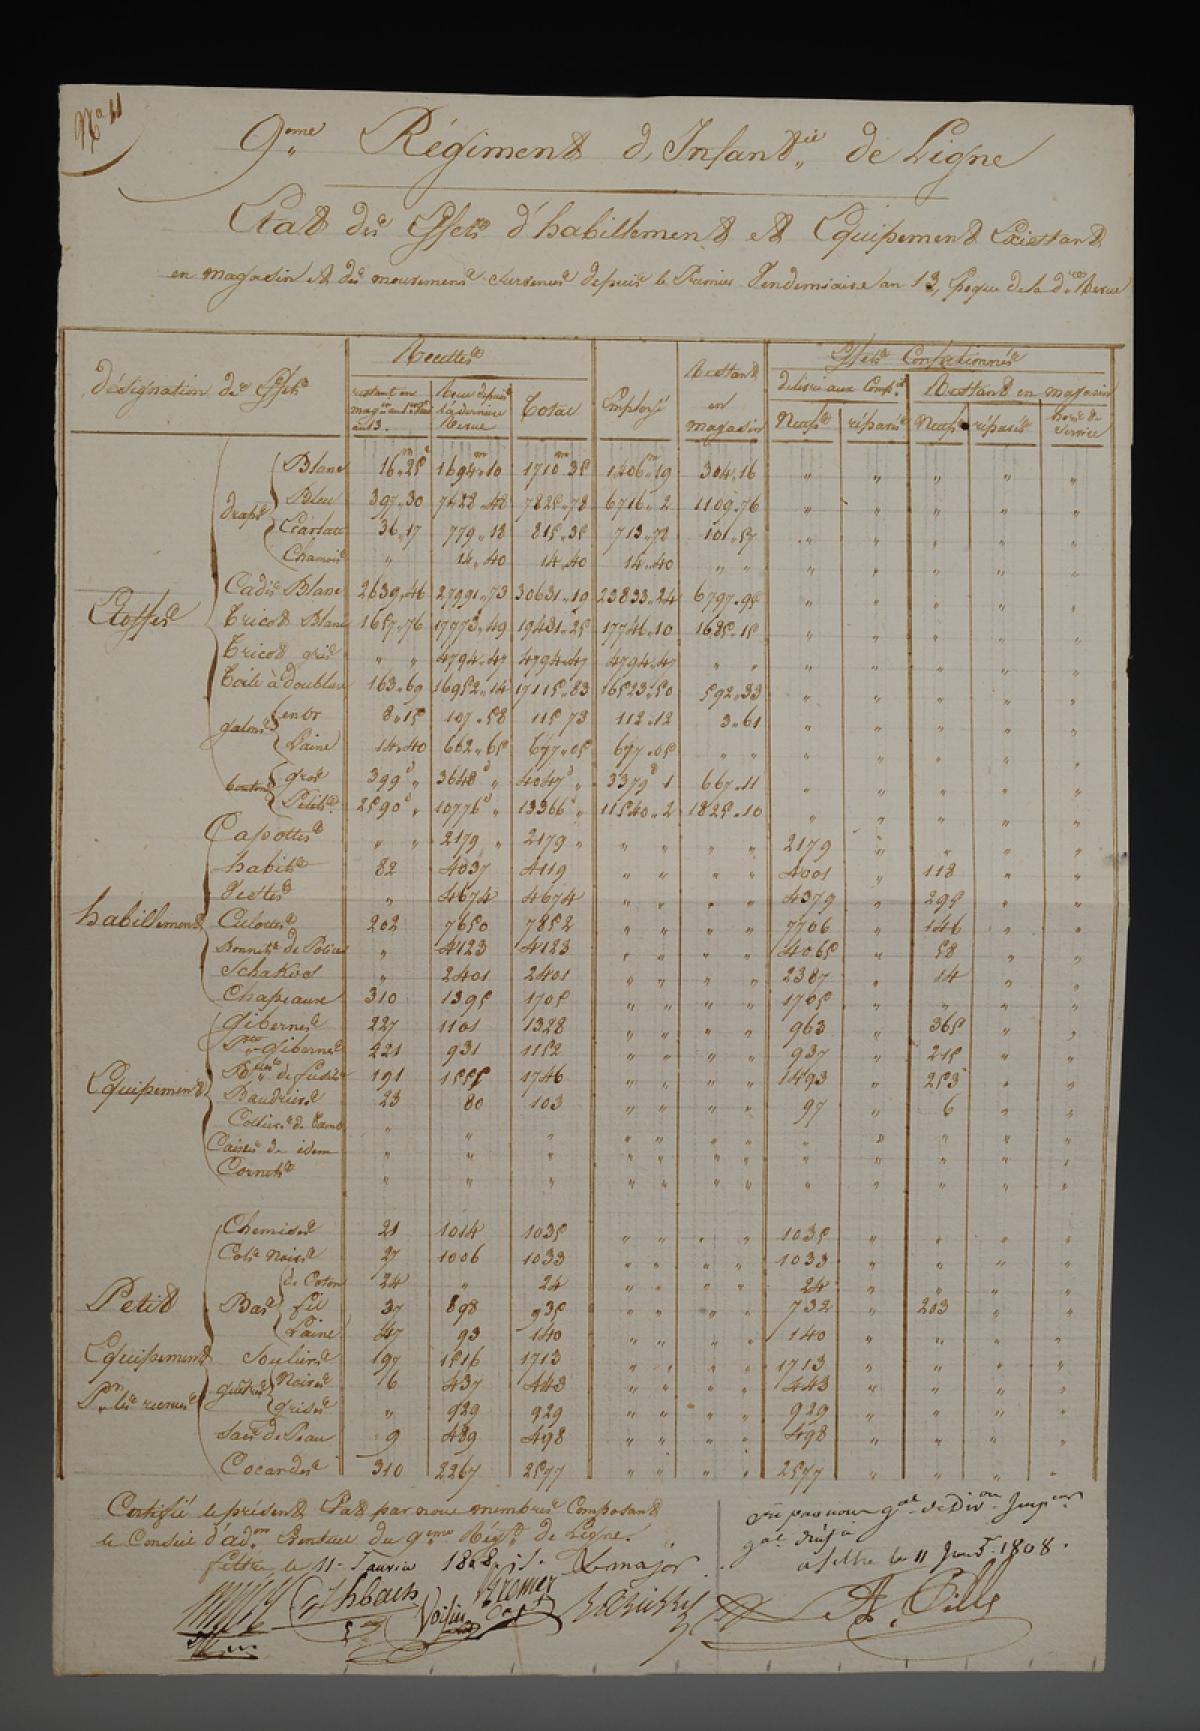 N° 11
9.ome Régiment d'Infant.ie de Ligne
Etat des Effets d'habillement et Equipement Existant
en magasin et des mouvemens survenus depuis le Premier Vendemiaire an 13, Epoque de la d.re Revue
désignation des Effets
Recettes
restant en mag.in au 1.er Vend.re an 13.
Reçu depuis la dernière Revue
Total
Employé
Restant en magasin
Effets Confectionnés
délivrés aux Comp.es
Restant en magasin
Neufs réparés Neufs réparés hors de Service
Etoffes
draps
Blanc 16.25 1694.10 1710.35 1406.19 304.16 " " " " "
Bleu 397.30 7428.48 7825.78 6716.2 1109.76 " " " " "
Ecarlate 36.17 779.18 815.35 713.78 101.57 " " " " "
Chamois " 14.40 14.40 14.40 " " " " " " "
Cadis Blanc 2639.46 27991.73 30631.19 23833.24 6797.95 " " " " "
Tricot Blanc 1657.76 17773.49 19431.25 17746.10 1685.15 " " " " "
Tricot gris " " 4794.47 4794.47 4794.47 " " " " " " "
Toile à doublure 163.69 16952.14 17115.83 16523.50 592.33 " " " " "
galons
en or 8.15 107.58 115.73 112.12 3.61 " " " " "
Laine 14.40 662.65 677.05 677.05 " " " " " " "
boutons
gros 399 " 3648 " 4047 " 3379 1 667.11 " " " " "
Petits 2590 " 10776 " 13366 " 11540.2 1825.10 " " " " "
habillement
Capottes " " 2179 " 2179 " " " " " 2179 " " " "
habits 82 4037 4119 " " " " 4001 " 118 " "
Vestes " 4674 4674 " " " " 4379 " 295 " "
Culottes 202 7650 7852 " " " " 7706 " 146 " "
Bonnets de Police " 4123 4123 " " " " 4065 " 58 " "
Schakos " 2401 2401 " " " " 2387 " 14 " "
Chapeaux 310 1395 1705 " " " " 1705 " " " "
Equipement
Gibernes 227 1101 1328 " " " " 963 " 365 " "
P.re gibernes 221 931 1152 " " " " 937 " 215 " "
B.elles de fusils 191 1555 1746 " " " " 1493 " 253 " "
Baudriers 23 80 103 " " " " 97 " 6 " "
Colliers de Tamb. " " " " " " " " " " " "
Caisses de idem " " " " " " " " " " " "
Cornets " " " " " " " " " " " "
Petit Equipement P.r les recrues
Chemises 21 1014 1035 " " " " 1035 " " " "
Cols Noirs 27 1006 1033 " " " " 1033 " " " "
Bas
de Coton 24 " 24 " " " " 24 " " " "
fil 37 898 935 " " " " 732 " 203 " "
Laine 47 93 140 " " " " 140 " " " "
Souliers 197 1516 1713 " " " " 1713 " " " "
guêtres
Noires 6 437 443 " " " " 443 " " " "
grises " 929 929 " " " " 929 " " " "
Sacs de Peau 9 489 498 " " " " 498 " " " "
Cocardes 310 2267 2577 " " " " 2577 " " " "
Certifié le présent Etat par nous membres Composant
le Conseil d'ad.on Eventuel du 9.eme Rég.t de Ligne.
feltre le 11 Janvier 1808
Le major
Voisin
Kromer
Cap
Vu par nous g.al de Div.on Insp.eur
g.al
a feltre le 11 Janv. 1808.